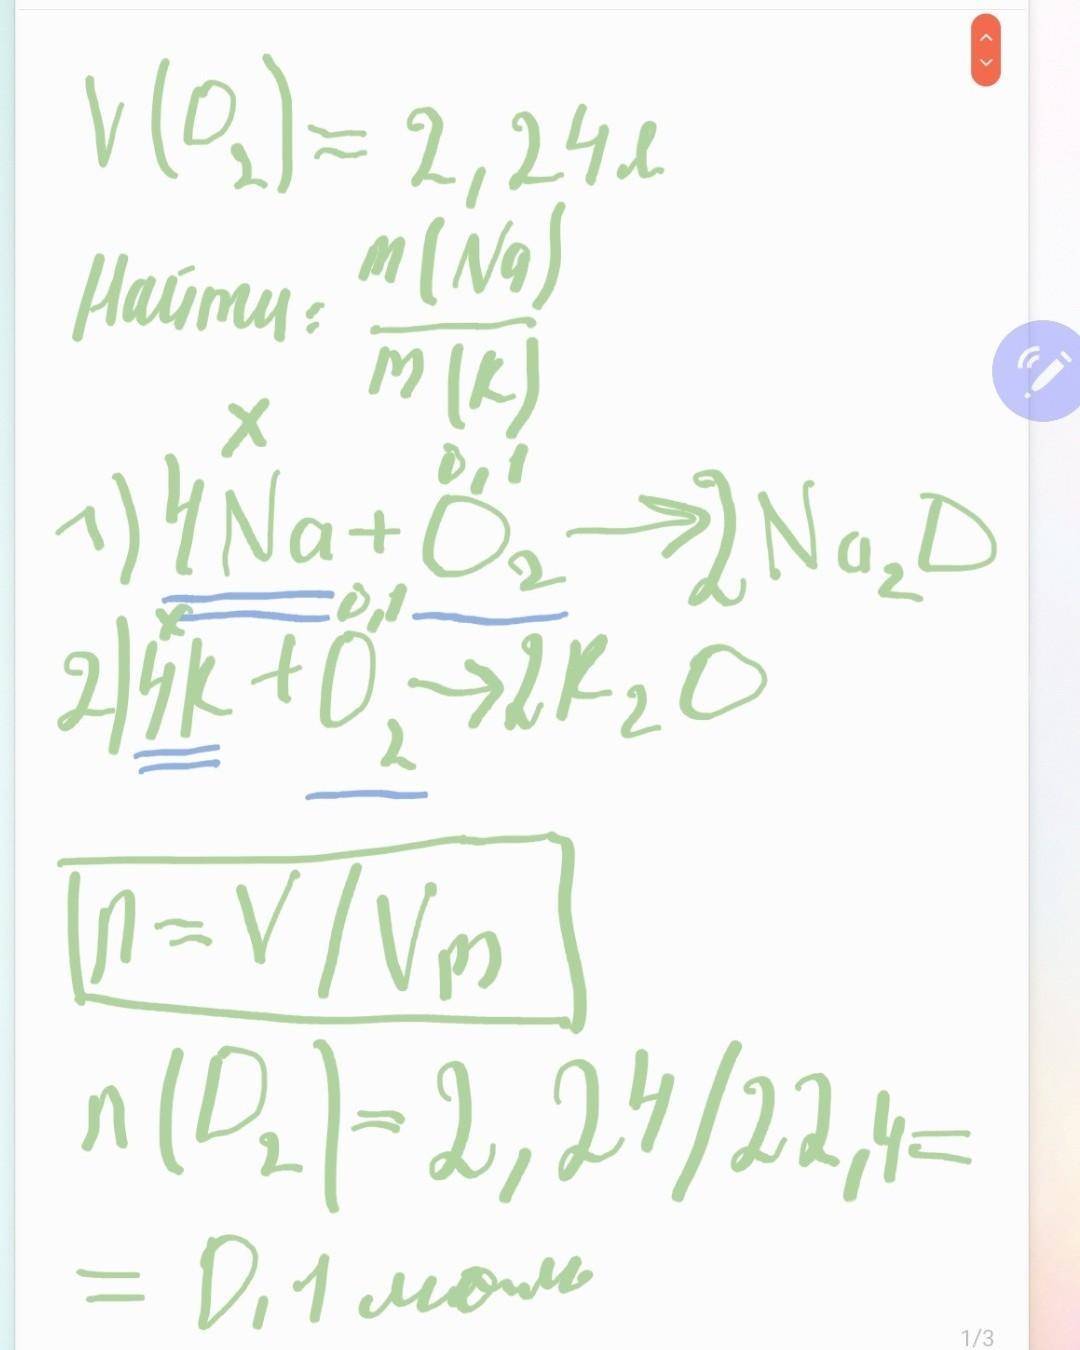 V(O₂) = 2,24 л
Найти: m(Na)
m(K)
x 0,1
1) 4Na + O₂ → 2Na₂O
x 0,1
2) 4K + O₂ → 2K₂O
n = V / Vm
n(O₂) = 2,24/22,4 =
= 0,1 моль
1/3